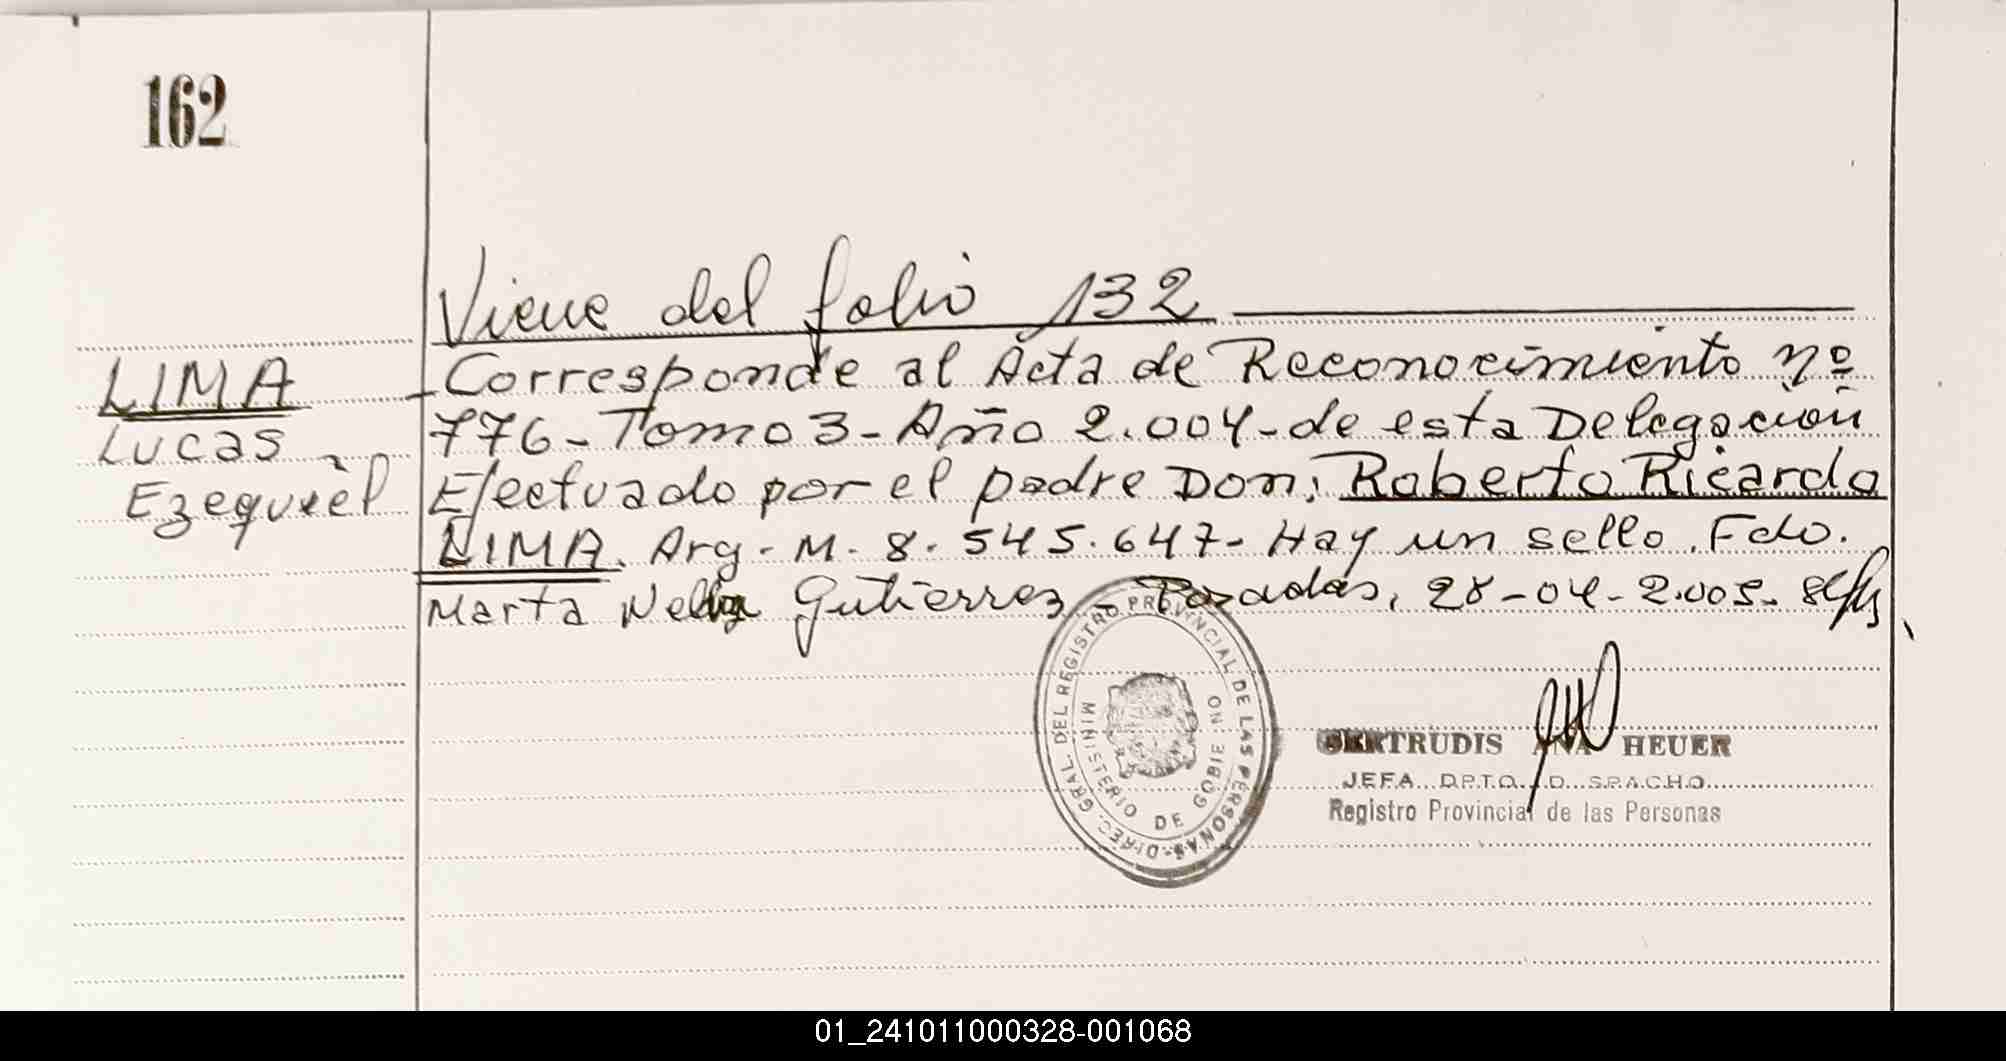 162
Viene del folio 132
LIMA
Lucas
Ezequiel
Corresponde al Acta de Reconocimiento nº
776- Tomo 3- Año 2.004- de esta Delegación
Efectuado por el padre Don: Roberto Ricardo
LIMA. Arg- M- 8.545.647- Hay un sello. Fdo.
Marta Nelly Gutierrez - Posadas, 28-04-2.005-
DIREC. GRAL. DEL REGISTRO PROVINCIAL DE LAS PERSONAS-
MINISTERIO DE GOBIERNO
GERTRUDIS ANA HEUER
JEFA DPTO. D SPACHO
Registro Provincial de las Personas
01_241011000328-001068